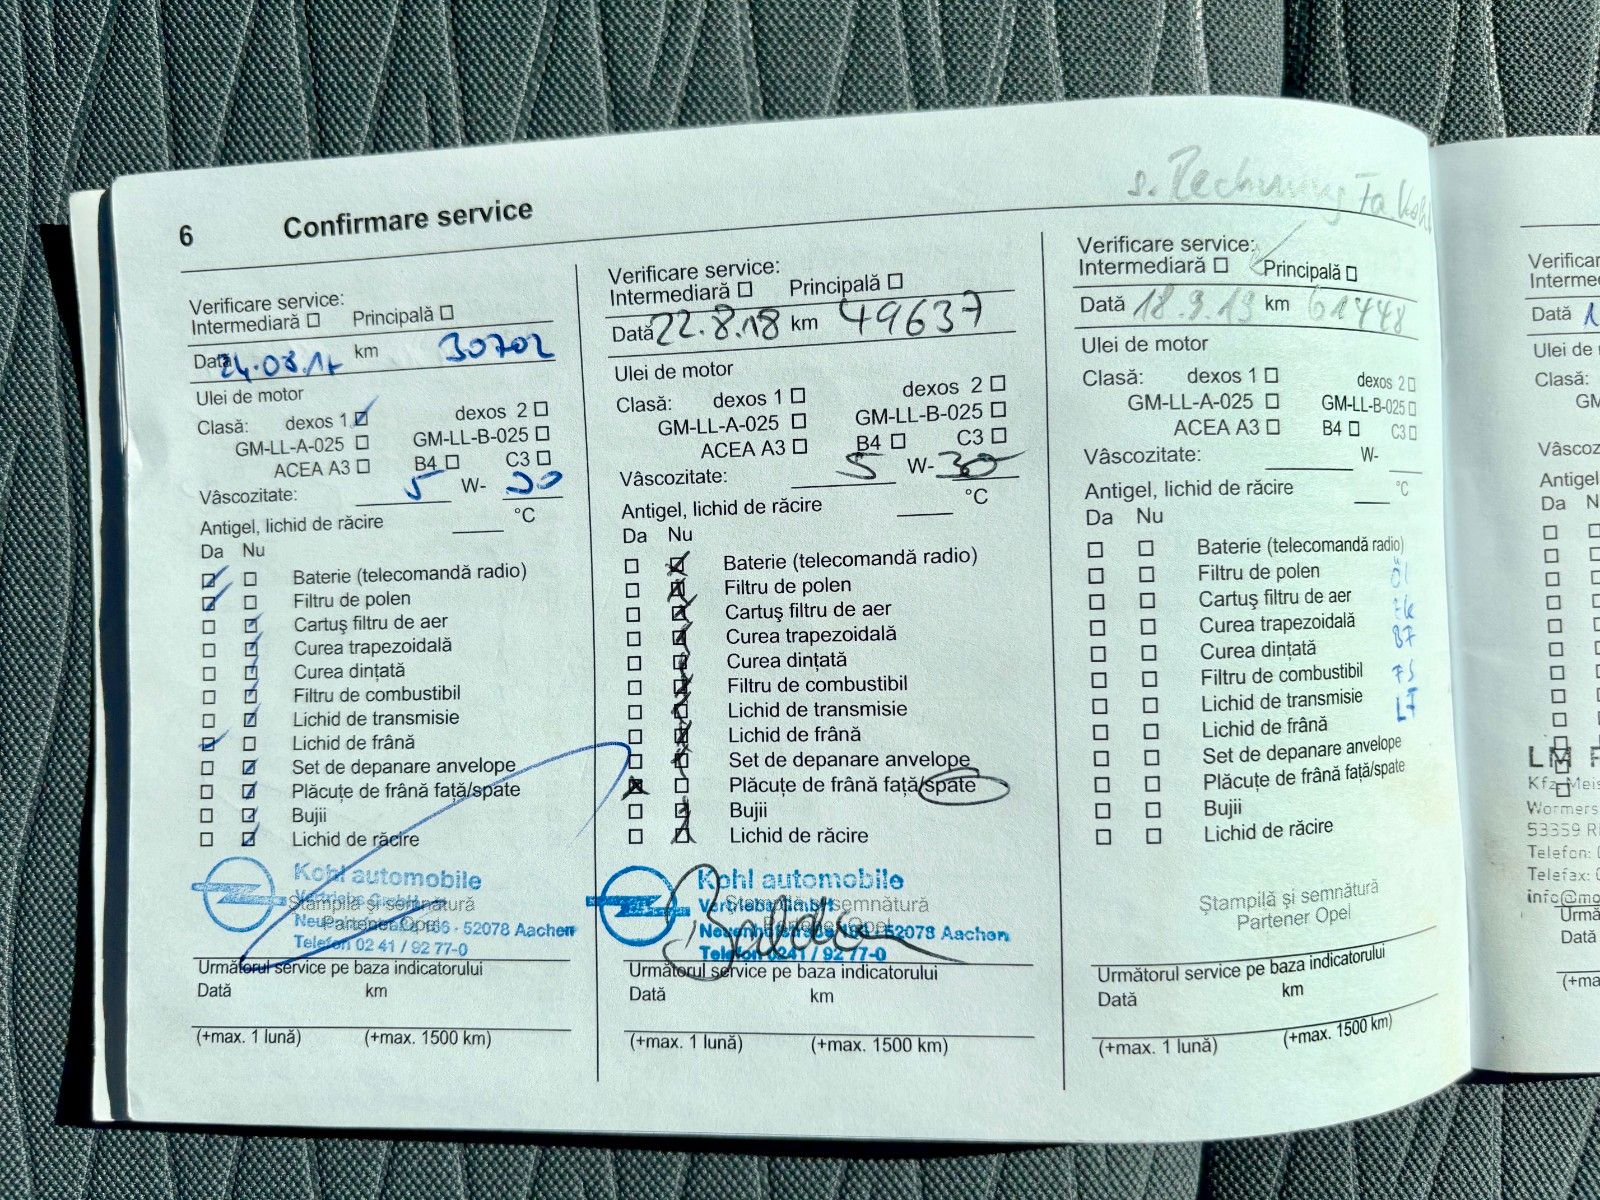 6 Confirmare service
s. Rechnung Fa. Kohl
Verificare service:
Intermediară Principală
Dată 24.08.17 km 30702
Ulei de motor
Clasă: dexos 1 dexos 2
GM-LL-A-025 GM-LL-B-025
ACEA A3 B4 C3
Vâscozitate: 5 W- 30
Antigel, lichid de răcire °C
Da Nu
Baterie (telecomandă radio)
Filtru de polen
Cartuş filtru de aer
Curea trapezoidală
Curea dinţată
Filtru de combustibil
Lichid de transmisie
Lichid de frână
Set de depanare anvelope
Plăcuţe de frână faţă/spate
Bujii
Lichid de răcire
Kohl automobile
Vertriebs GmbH
Ştampilă şi semnătură
Partener Opel
52078 Aachen
Telefon 02 41 / 92 77-0
Următorul service pe baza indicatorului
Dată km
(+max. 1 lună) (+max. 1500 km)
Verificare service:
Intermediară Principală
Dată 22.8.18 km 49637
Ulei de motor
Clasă: dexos 1 dexos 2
GM-LL-A-025 GM-LL-B-025
ACEA A3 B4 C3
Vâscozitate: 5 W- 30
Antigel, lichid de răcire °C
Da Nu
Baterie (telecomandă radio)
Filtru de polen
Cartuş filtru de aer
Curea trapezoidală
Curea dinţată
Filtru de combustibil
Lichid de transmisie
Lichid de frână
Set de depanare anvelope
Plăcuţe de frână faţă/spate
Bujii
Lichid de răcire
Kohl automobile
Vertriebs GmbH
Ştampilă şi semnătură
Partener Opel
52078 Aachen
Telefon 0241 / 92 77-0
Următorul service pe baza indicatorului
Dată km
(+max. 1 lună) (+max. 1500 km)
Verificare service:
Intermediară Principală
Dată 18.9.19 km 61448
Ulei de motor
Clasă: dexos 1 dexos 2
GM-LL-A-025 GM-LL-B-025
ACEA A3 B4 C3
Vâscozitate: W-
Antigel, lichid de răcire °C
Da Nu
Baterie (telecomandă radio)
Filtru de polen Öl
Cartuş filtru de aer
Curea trapezoidală
Curea dinţată
Filtru de combustibil
Lichid de transmisie
Lichid de frână
Set de depanare anvelope
Plăcuţe de frână faţă/spate
Bujii
Lichid de răcire
Ştampilă şi semnătură
Partener Opel
Următorul service pe baza indicatorului
Dată km
(+max. 1 lună) (+max. 1500 km)
Dată
Ulei de
Clasă:
Da
LM
Kfz-Meis
53359
Telefon:
Telefax:
Dată